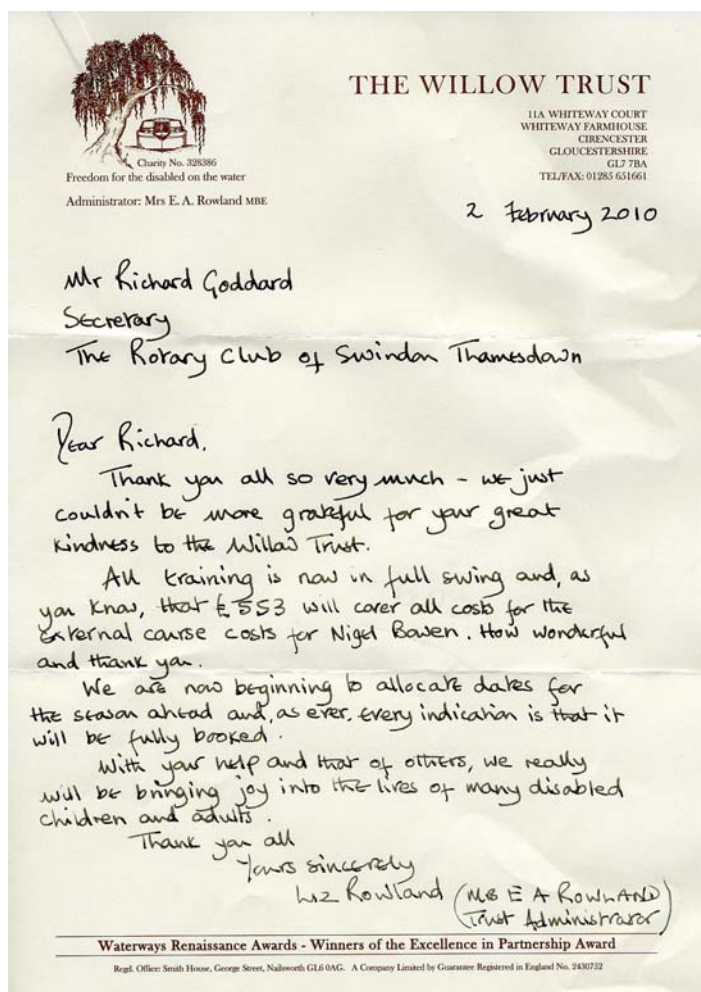 THE WILLOW TRUST
11A WHITEWAY COURT
WHITEWAY FARMHOUSE
CIRENCESTER
GLOUCESTERSHIRE
GL7 7BA
TEL/FAX: 01285 651661
Charity No. 328386
Freedom for the disabled on the water
Administrator: Mrs E. A. Rowland MBE
2 February 2010
Mr Richard Goddard
Secretary
The Rotary Club of Swindon Thamesdown
Dear Richard,
Thank you all so very much - we just
couldn't be more grateful for your great
kindness to the Willow Trust.
All training is now in full swing and, as
you know, that £553 will cover all costs for the
external course costs for Nigel Bowen. How wonderful
and thank you.
We are now beginning to allocate dates for
the season ahead and, as ever, every indication is that it
will be fully booked.
With your help and that of others, we really
will be bringing joy into the lives of many disabled
children and adults.
Thank you all
Yours sincerely
Liz Rowland (MRS E A ROWLAND)
(Trust Administrator)
Waterways Renaissance Awards - Winners of the Excellence in Partnership Award
Regd. Office: Smith House, George Street, Nailsworth GL6 0AG. A Company Limited by Guarantee Registered in England No. 2430752